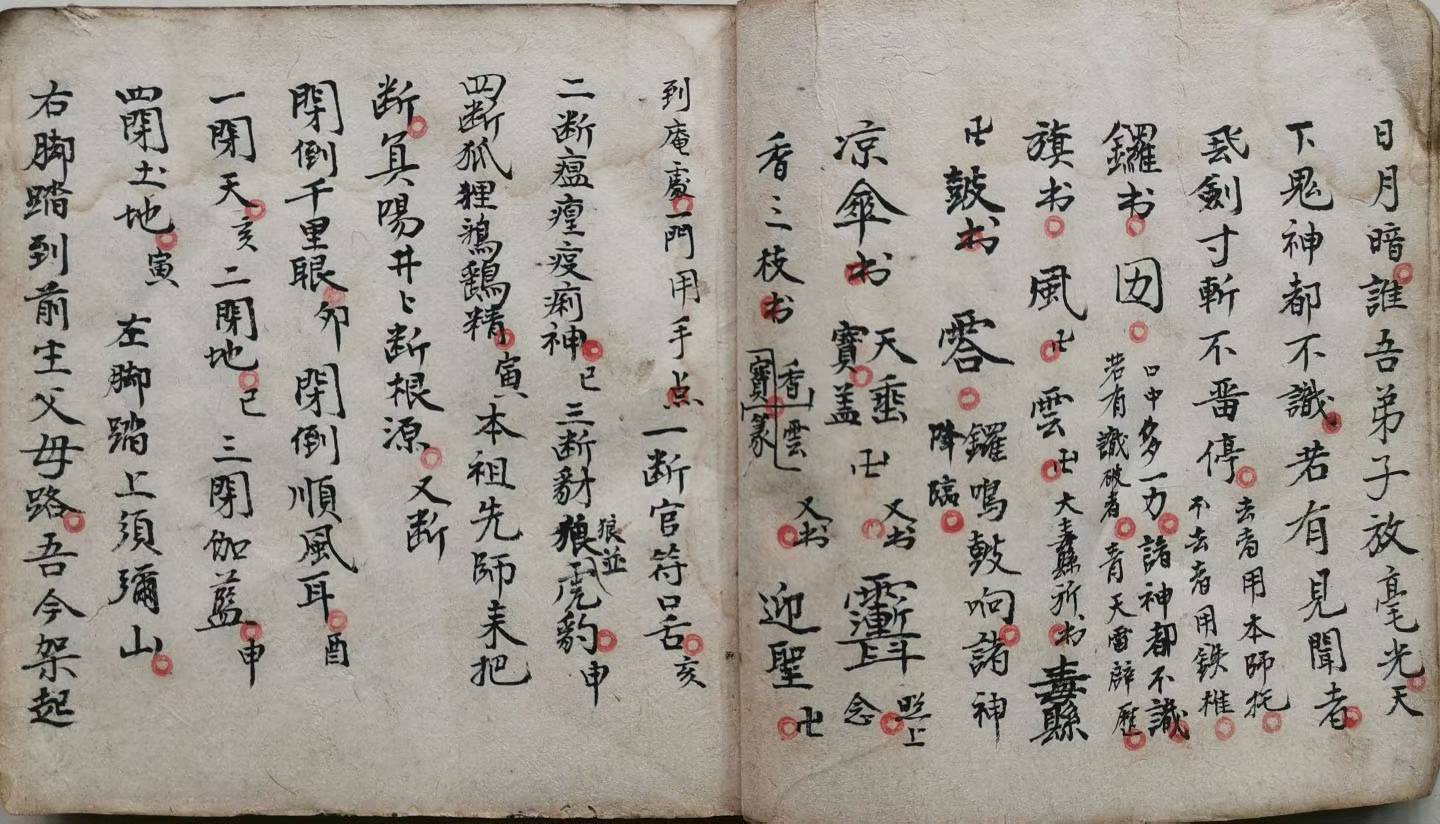 日月暗誰吾弟子放毫光天
下鬼神都不識若有見聞者
飛劍寸斬不畱停去者用本師托
不去者用鉄椎
鑼书 口中多一力諸神都不識
若有識破者青天雷辟歷
旗书 風卍 雲卍 大毒縣所书 毒縣
卍鼓书 鑼鳴鼓响諸神
降臨
凉傘书 天垂卍 又书 照上
寶盖 念
香三枝书 香雲 又书 迎聖卍
寶篆
到庵處一門用手点一断官符口舌亥
二断瘟瘟疫痢神巳三断豺狼虎豹申
狼並
四断狐狸鴉鷄精寅本祖先師来把
断 陽井七断根源又断
閉倒千里眼卯 閉倒順風耳酉
一閉天亥二閉地巳三閉伽藍申
四閉土地寅 左脚踏上須彌山
右脚踏到前生父母路吾今架起